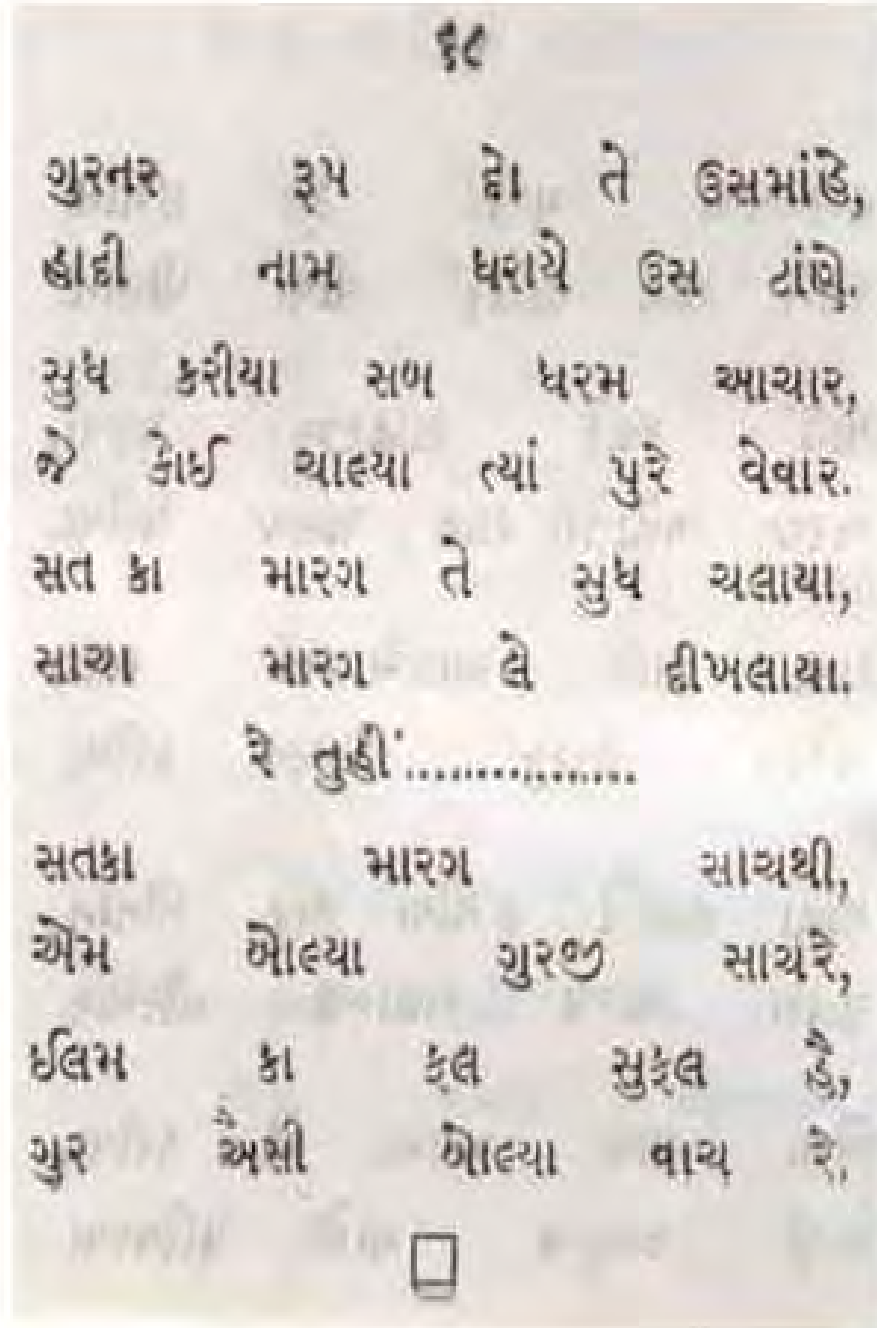 ૬૮
ગુરનર રૂપ દો તે ઉસમાંહે,
હાદી નામ ધરાયે ઉસ ટાંણે.
સુધ કરીયા સબ ધરમ આચાર,
જે કોઈ ચાલ્યા ત્યાં પુરે વેવાર.
સત કા મારગ તે સુધ ચલાયા,
સાચા મારગ લે દીખલાયા.
રે તુહીં...............
સતકા મારગ સાચથી,
એમ બોલ્યા ગુરજી સાચરે,
ઈલમ કા ફલ સુફલ હૈ,
ગુર ઐસી બોલ્યા વાચ રે.